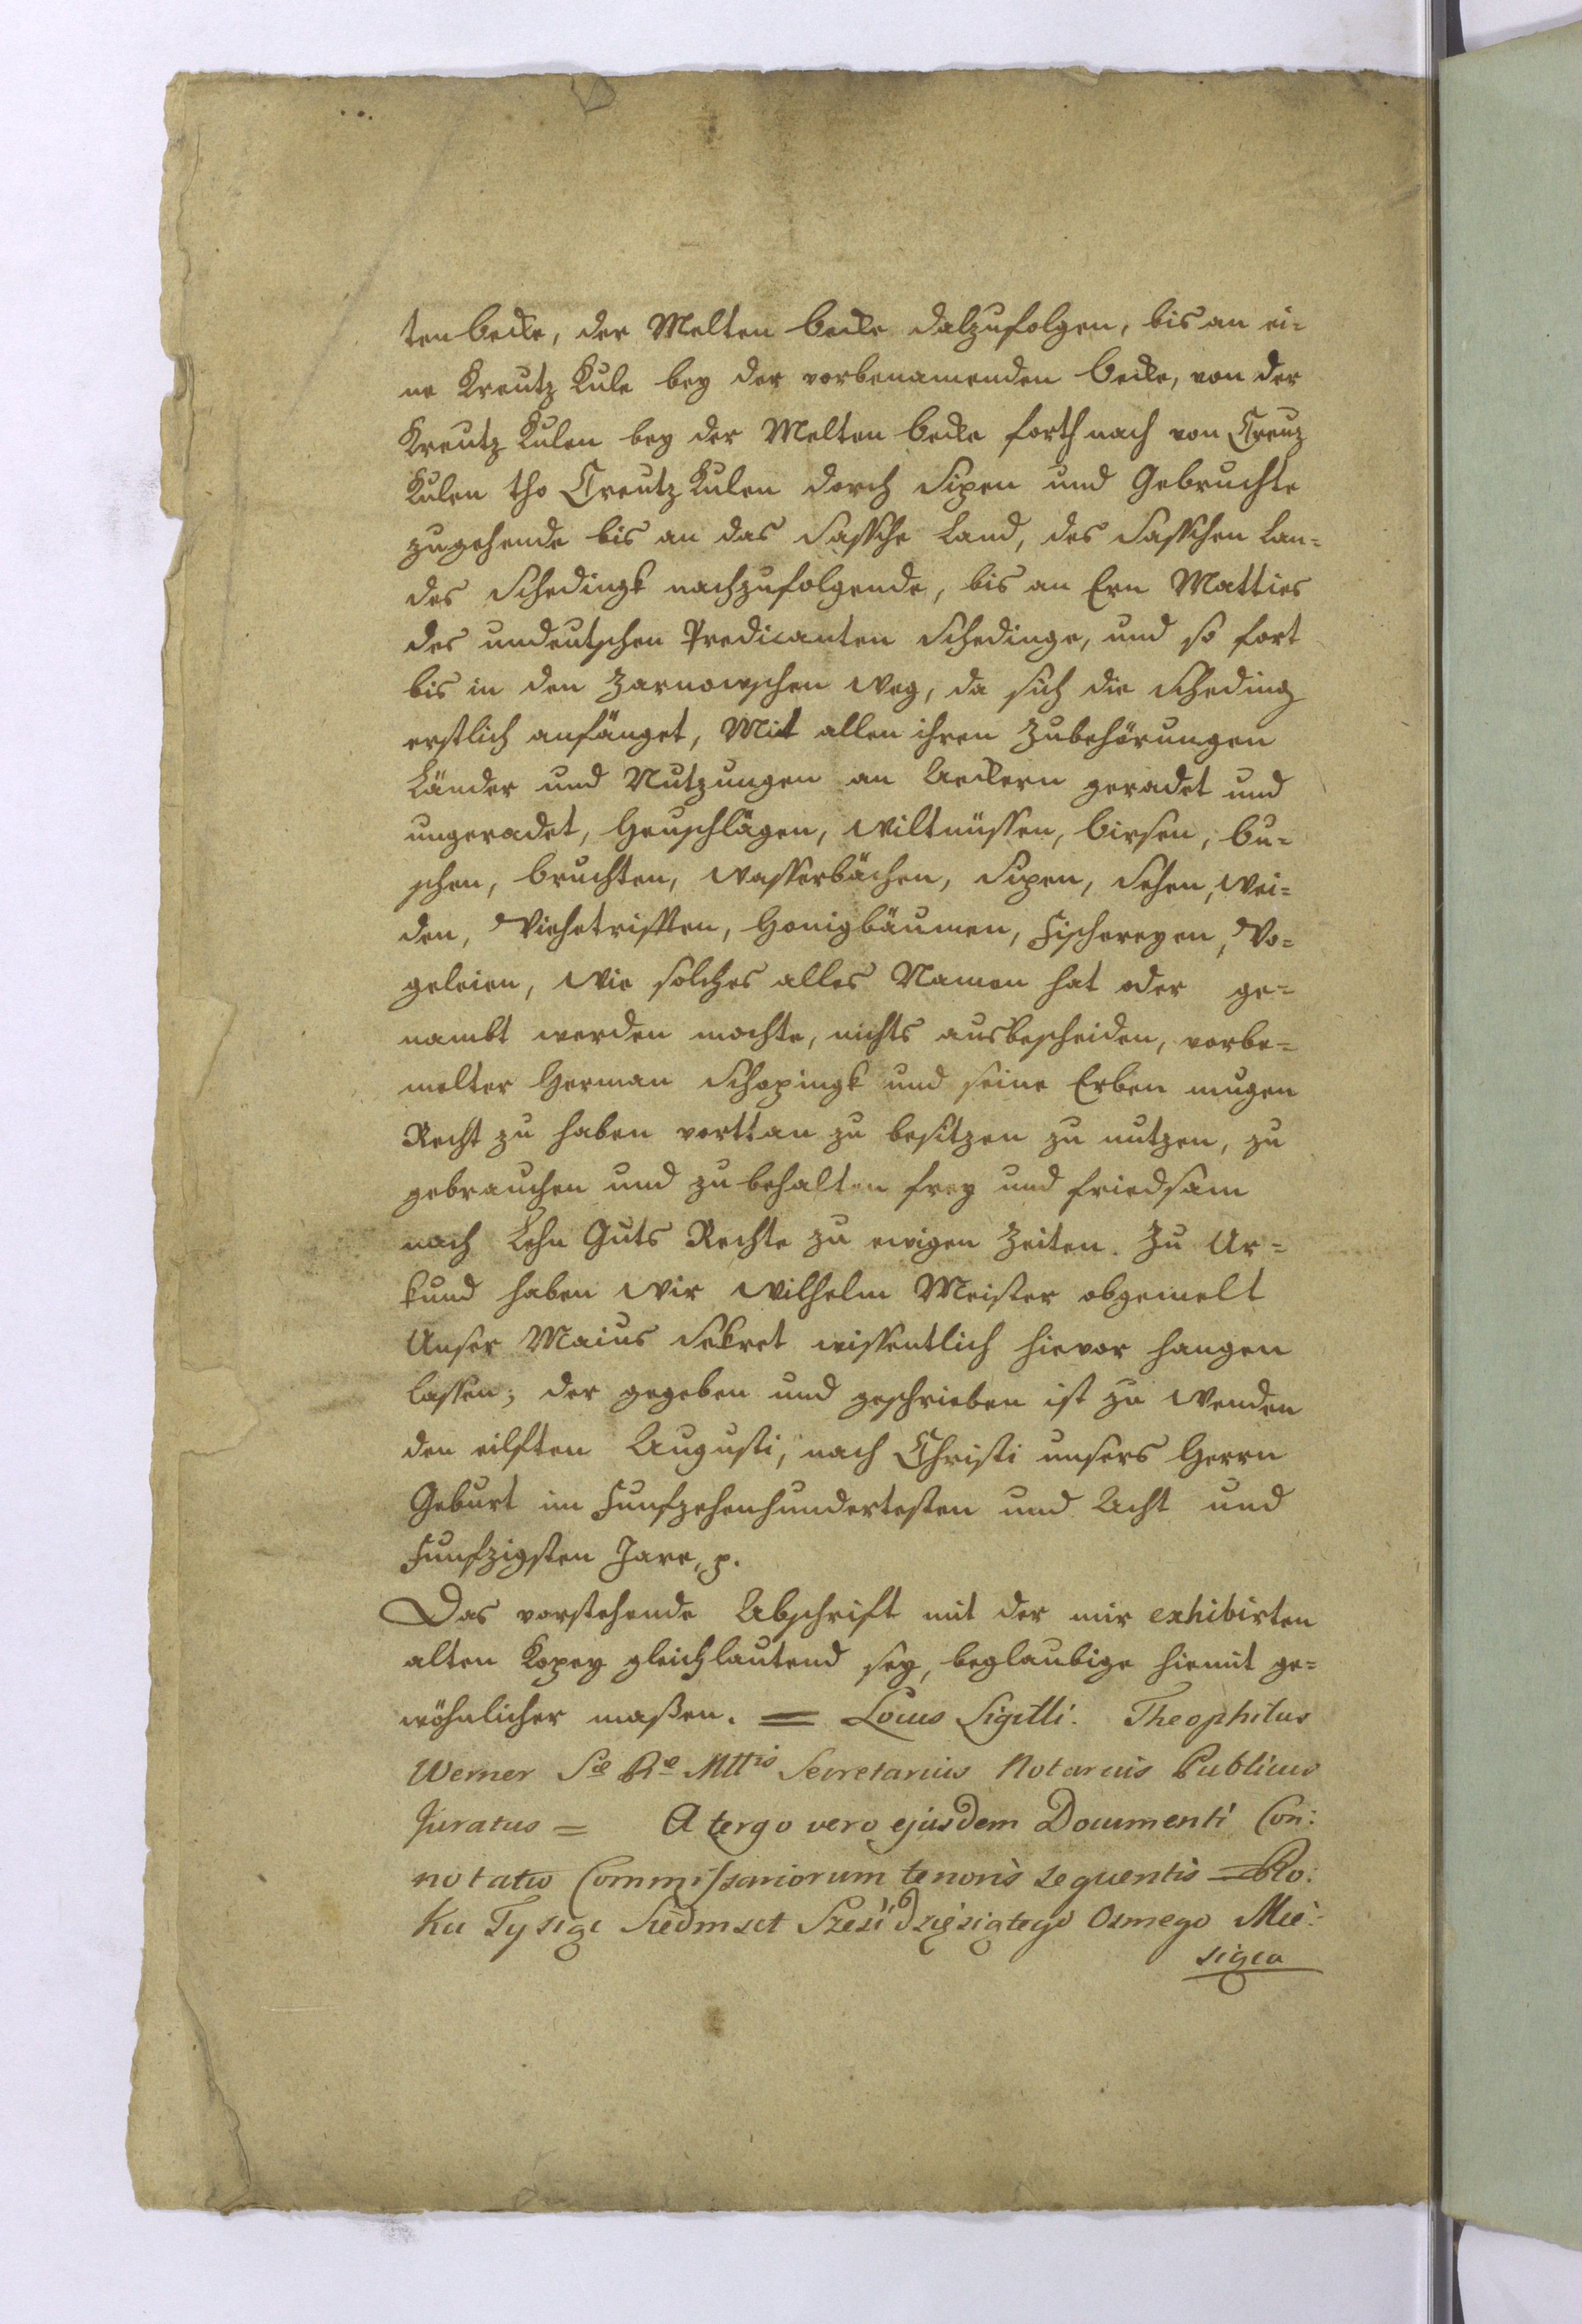 ten becke, der Melten becke dalzufolgen, bis an ei=
ne Kreutz Kule bey der vorbenamenden becke, von der
Kreutz Kulen bey der Melten becke forth nach von Creuz
Kulen tho Creutz Kulen dorch Sipen und Gebruchte
zugehende bis an das Sassche Land, des Sasschen Lan=
des Schedingk nachzufolgende, bis an Ern Matties
des undeutschen Predicanten Schedinge, und so fort
bis in den Zarnowschen weg, da sich die Scheding
erstlich anfänget, Mit allen ihren Zubehörungen
Länder und Nutzungen an Aeckern geradet und
ungeradet, Heuschlägen, Wiltnüssen, birsen, bu=
schen, bruchten, Wasserbächen, Sipen, Sehen, Wei=
den, Viehetrifften, Honigbäumen, Fischereyen, Vo=
geleien, wie solches alles Namen hat oder ge=
nambt werden mochte, nichts ausbescheiden, vorbe=
melter Herman Schopingk und seine Erben mugen
Recht zu haben vorttan zu besitzen zu nutzen, zu
gebrauchen und zu behalten frey und friedsam
nach Lehn Guts Rechte zu ewigen Zeiten. Zu Ur=
kund haben Wir Wilhelm Meister obgemelt
Unser Maius Sekret wissentlich hievor hangen
lassen; der gegeben und geschrieben ist zu Wenden
den eilften Augusti, nach Christi unsers Herrn
Geburt im Funfzehenhundertesten und Acht und
Funfzigsten Jare, p.
Das vorstehende Abschrift mit der mir exhibirten
alten Kopey gleichlautend sey, beglaubige hiemit ge=
wöhnlicher maßen. = Locus Sigilli. Theophilus
Werner Sæ Ræ Mttis Secretarius Notarius Publicus
Juratus = A tergo vero ejusdem Documenti Con:
notatio Commissariorum tenoris sequentis = Ro:
ku Tysiąc Siedmset Sześćdziesiątego Osmego Mie:
siąca